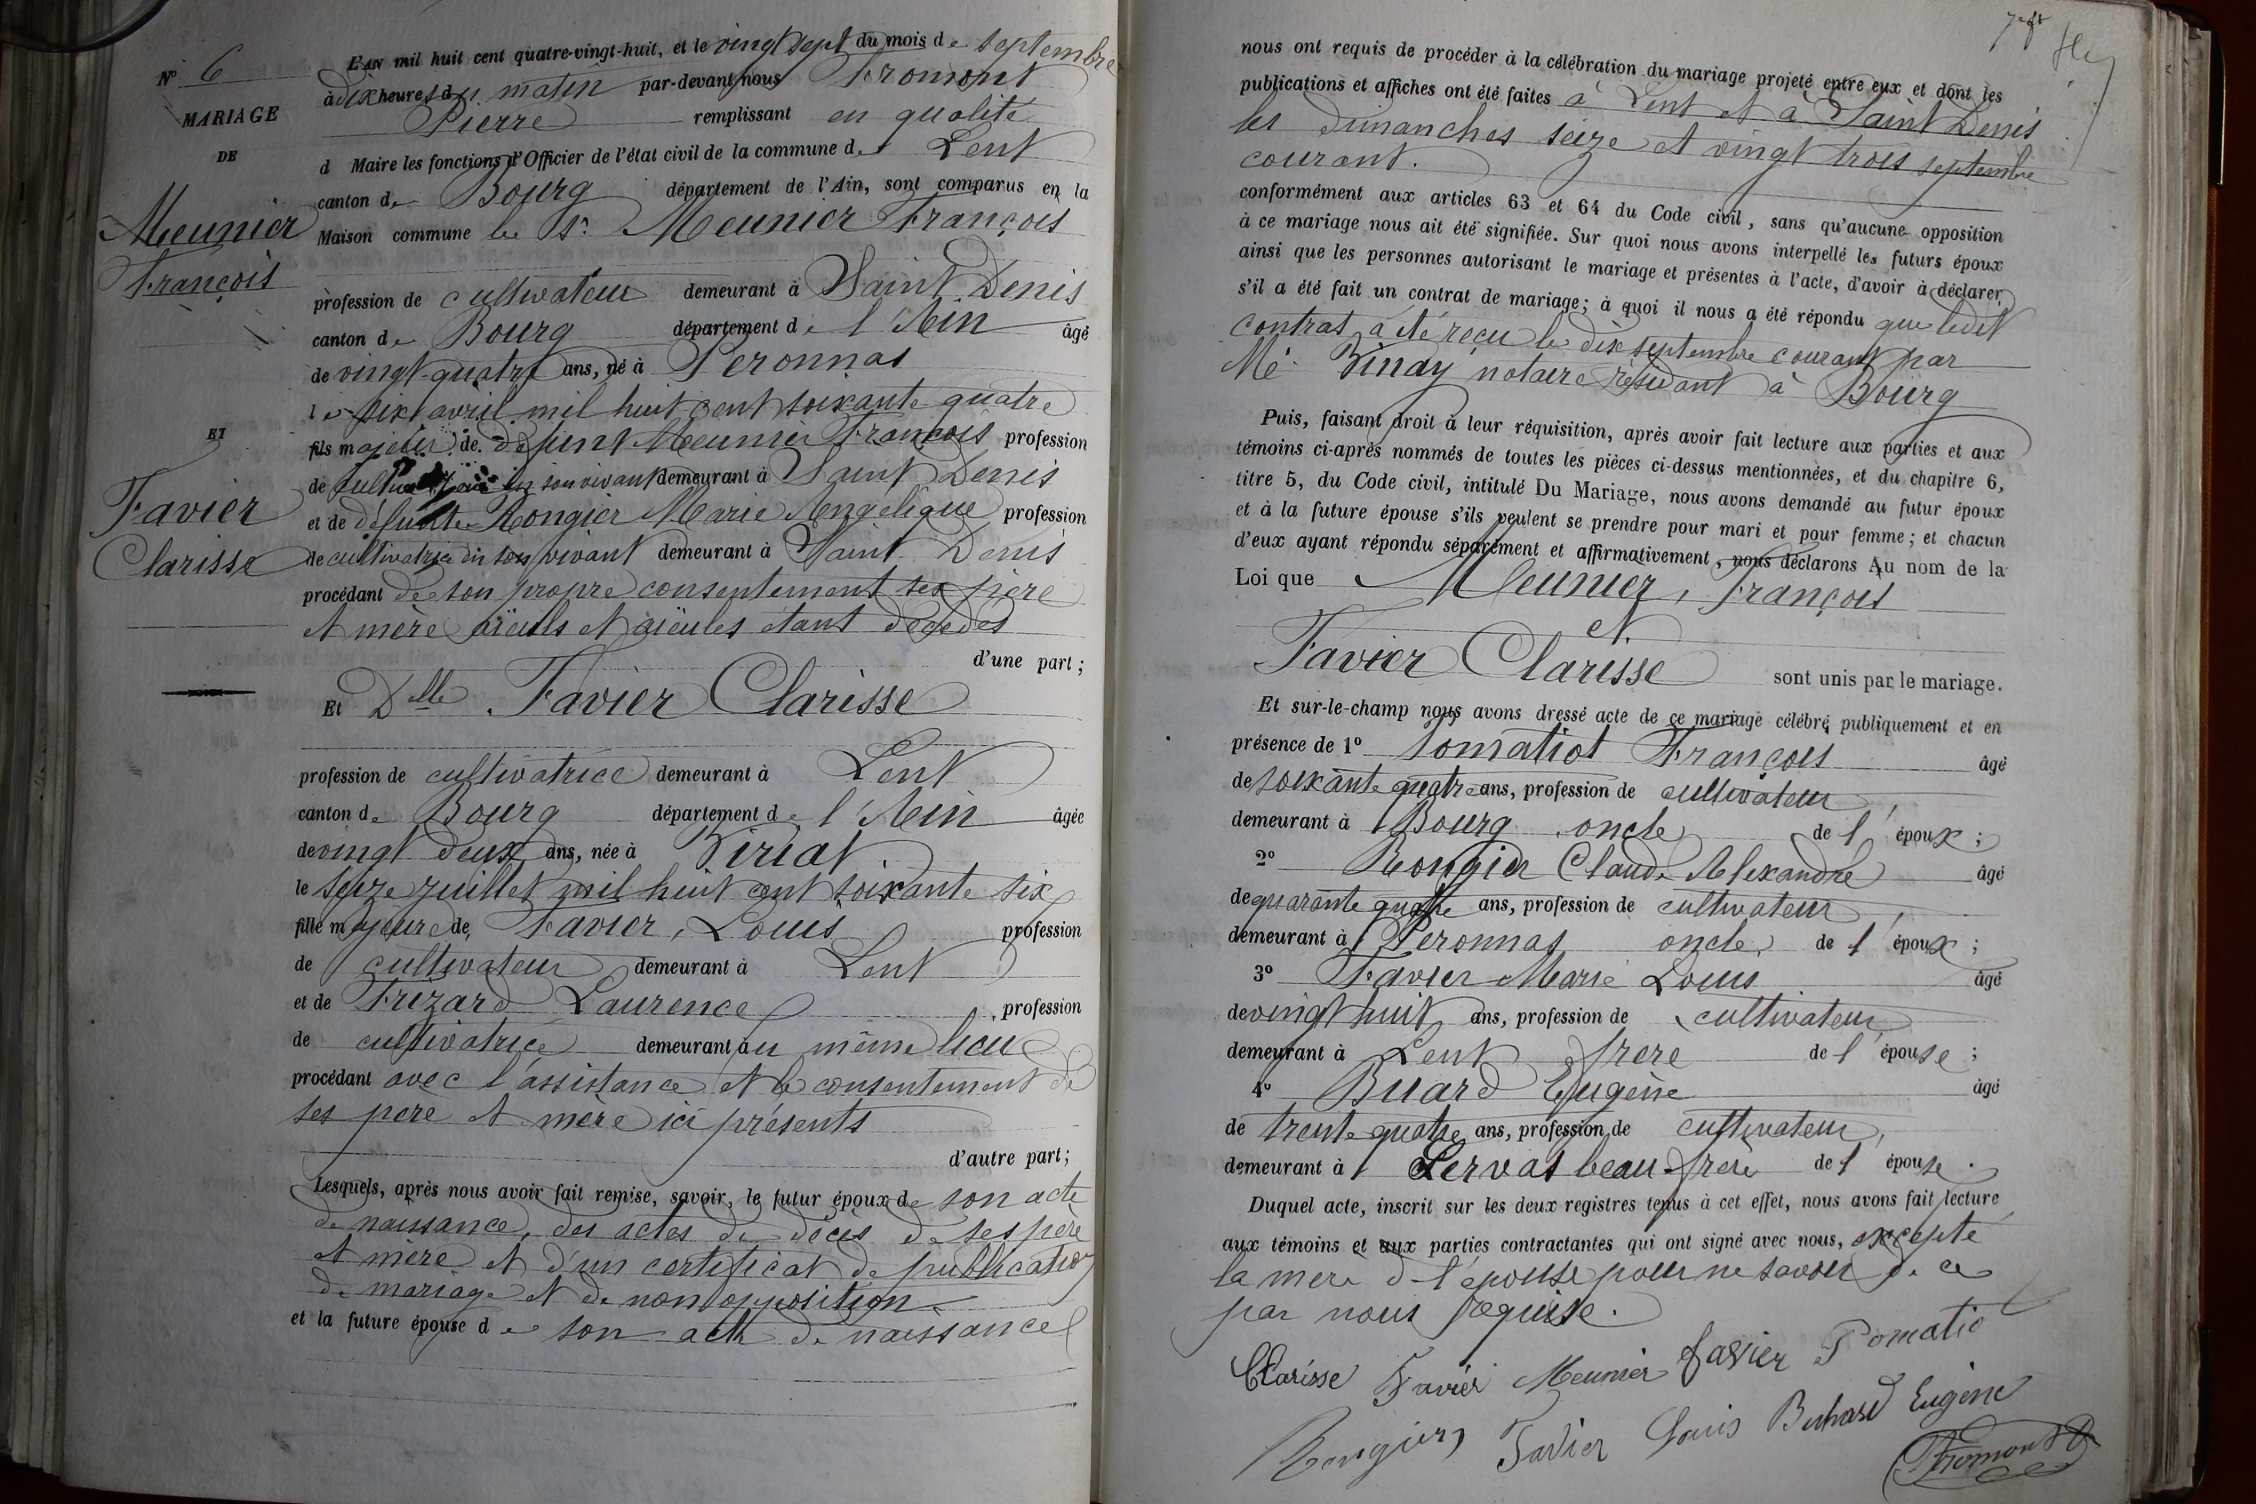 N° 6
MARIAGE
DE
Meunier
François
ET
Favier
Clarisse
L'AN mil huit cent quatre-vingt-huit, et le vingt sept du mois de septembre
à dix heures du matin par-devant nous Fromont
Pierre remplissant en qualité
d Maire les fonctions d'Officier de l'état civil de la commune de Lent
canton de Bourg département de l'Ain, sont comparus en la
Maison commune le Sr Meunier François
profession de cultivateur demeurant à Saint Denis
canton de Bourg département de l'Ain âgé
de vingt-quatre ans, né à Peronnas
le six avril mil huit cent soixante quatre
fils majeur de défunt Meunier François profession
de cultivateur en son vivant demeurant à Saint Denis
et de défunte Rongier Marie Angélique profession
de cultivatrice en son vivant demeurant à Saint Denis
procédant de son propre consentement ses père
et mère aïeuls et aïeules étant décédés
d'une part;
Et Dlle Favier Clarisse
profession de cultivatrice demeurant à Lent
canton de Bourg département de l'Ain âgée
de vingt deux ans, née à Viriat
le seize juillet mil huit cent soixante six
fille majeure de Favier, Louis profession
de cultivateur demeurant à Lent
et de Frizard Laurence profession
de cultivatrice demeurant au même lieu
procédant avec l'assistance et le consentement de
ses père et mère ici présents
d'autre part;
Lesquels, après nous avoir fait remise, savoir, le futur époux de son acte
de naissance, des actes de décès de ses père
et mère et d'un certificat de publication
de mariage et de non opposition
et la future épouse de son acte de naissance
nous ont requis de procéder à la célébration du mariage projeté entre eux et dont les
publications et affiches ont été faites à Lent et à Saint Denis
les dimanches seize et vingt trois septembre
courant.
conformément aux articles 63 et 64 du Code civil, sans qu'aucune opposition
à ce mariage nous ait été signifiée. Sur quoi nous avons interpellé les futurs époux
ainsi que les personnes autorisant le mariage et présentes à l'acte, d'avoir à déclarer
s'il a été fait un contrat de mariage; à quoi il nous a été répondu que ledit
contrat a été reçu le dix septembre courant par
Me Vinay notaire résidant à Bourg
Puis, faisant droit à leur réquisition, après avoir fait lecture aux parties et aux
témoins ci-après nommés de toutes les pièces ci-dessus mentionnées, et du chapitre 6,
titre 5, du Code civil, intitulé Du Mariage, nous avons demandé au futur époux
et à la future épouse s'ils veulent se prendre pour mari et pour femme; et chacun
d'eux ayant répondu séparément et affirmativement, nous déclarons Au nom de la
Loi que Meunier, François
et
Favier Clarisse sont unis par le mariage.
Et sur-le-champ nous avons dressé acte de ce mariage célébré publiquement et en
présence de 1° Pomatiot François âgé
de soixante quatre ans, profession de cultivateur,
demeurant à Bourg oncle de l'époux;
2° Rongier Claude Alexandre âgé
de quarante quatre ans, profession de cultivateur,
demeurant à Peronnas oncle de l'époux;
3° Favier Marie Louis âgé
de vingt huit ans, profession de cultivateur,
demeurant à Lent frère de l'épouse;
4° Buard Eugène âgé
de trente quatre ans, profession de cultivateur,
demeurant à Servas beau-frère de l'épouse.
Duquel acte, inscrit sur les deux registres tenus à cet effet, nous avons fait lecture
aux témoins et aux parties contractantes qui ont signé avec nous, excepté
la mère de l'épouse pour ne savoir de ce
par nous requise.
Clarisse Favier Meunier favier Pomatio
Rongier Favier Louis Buhard Eugène
Fromont